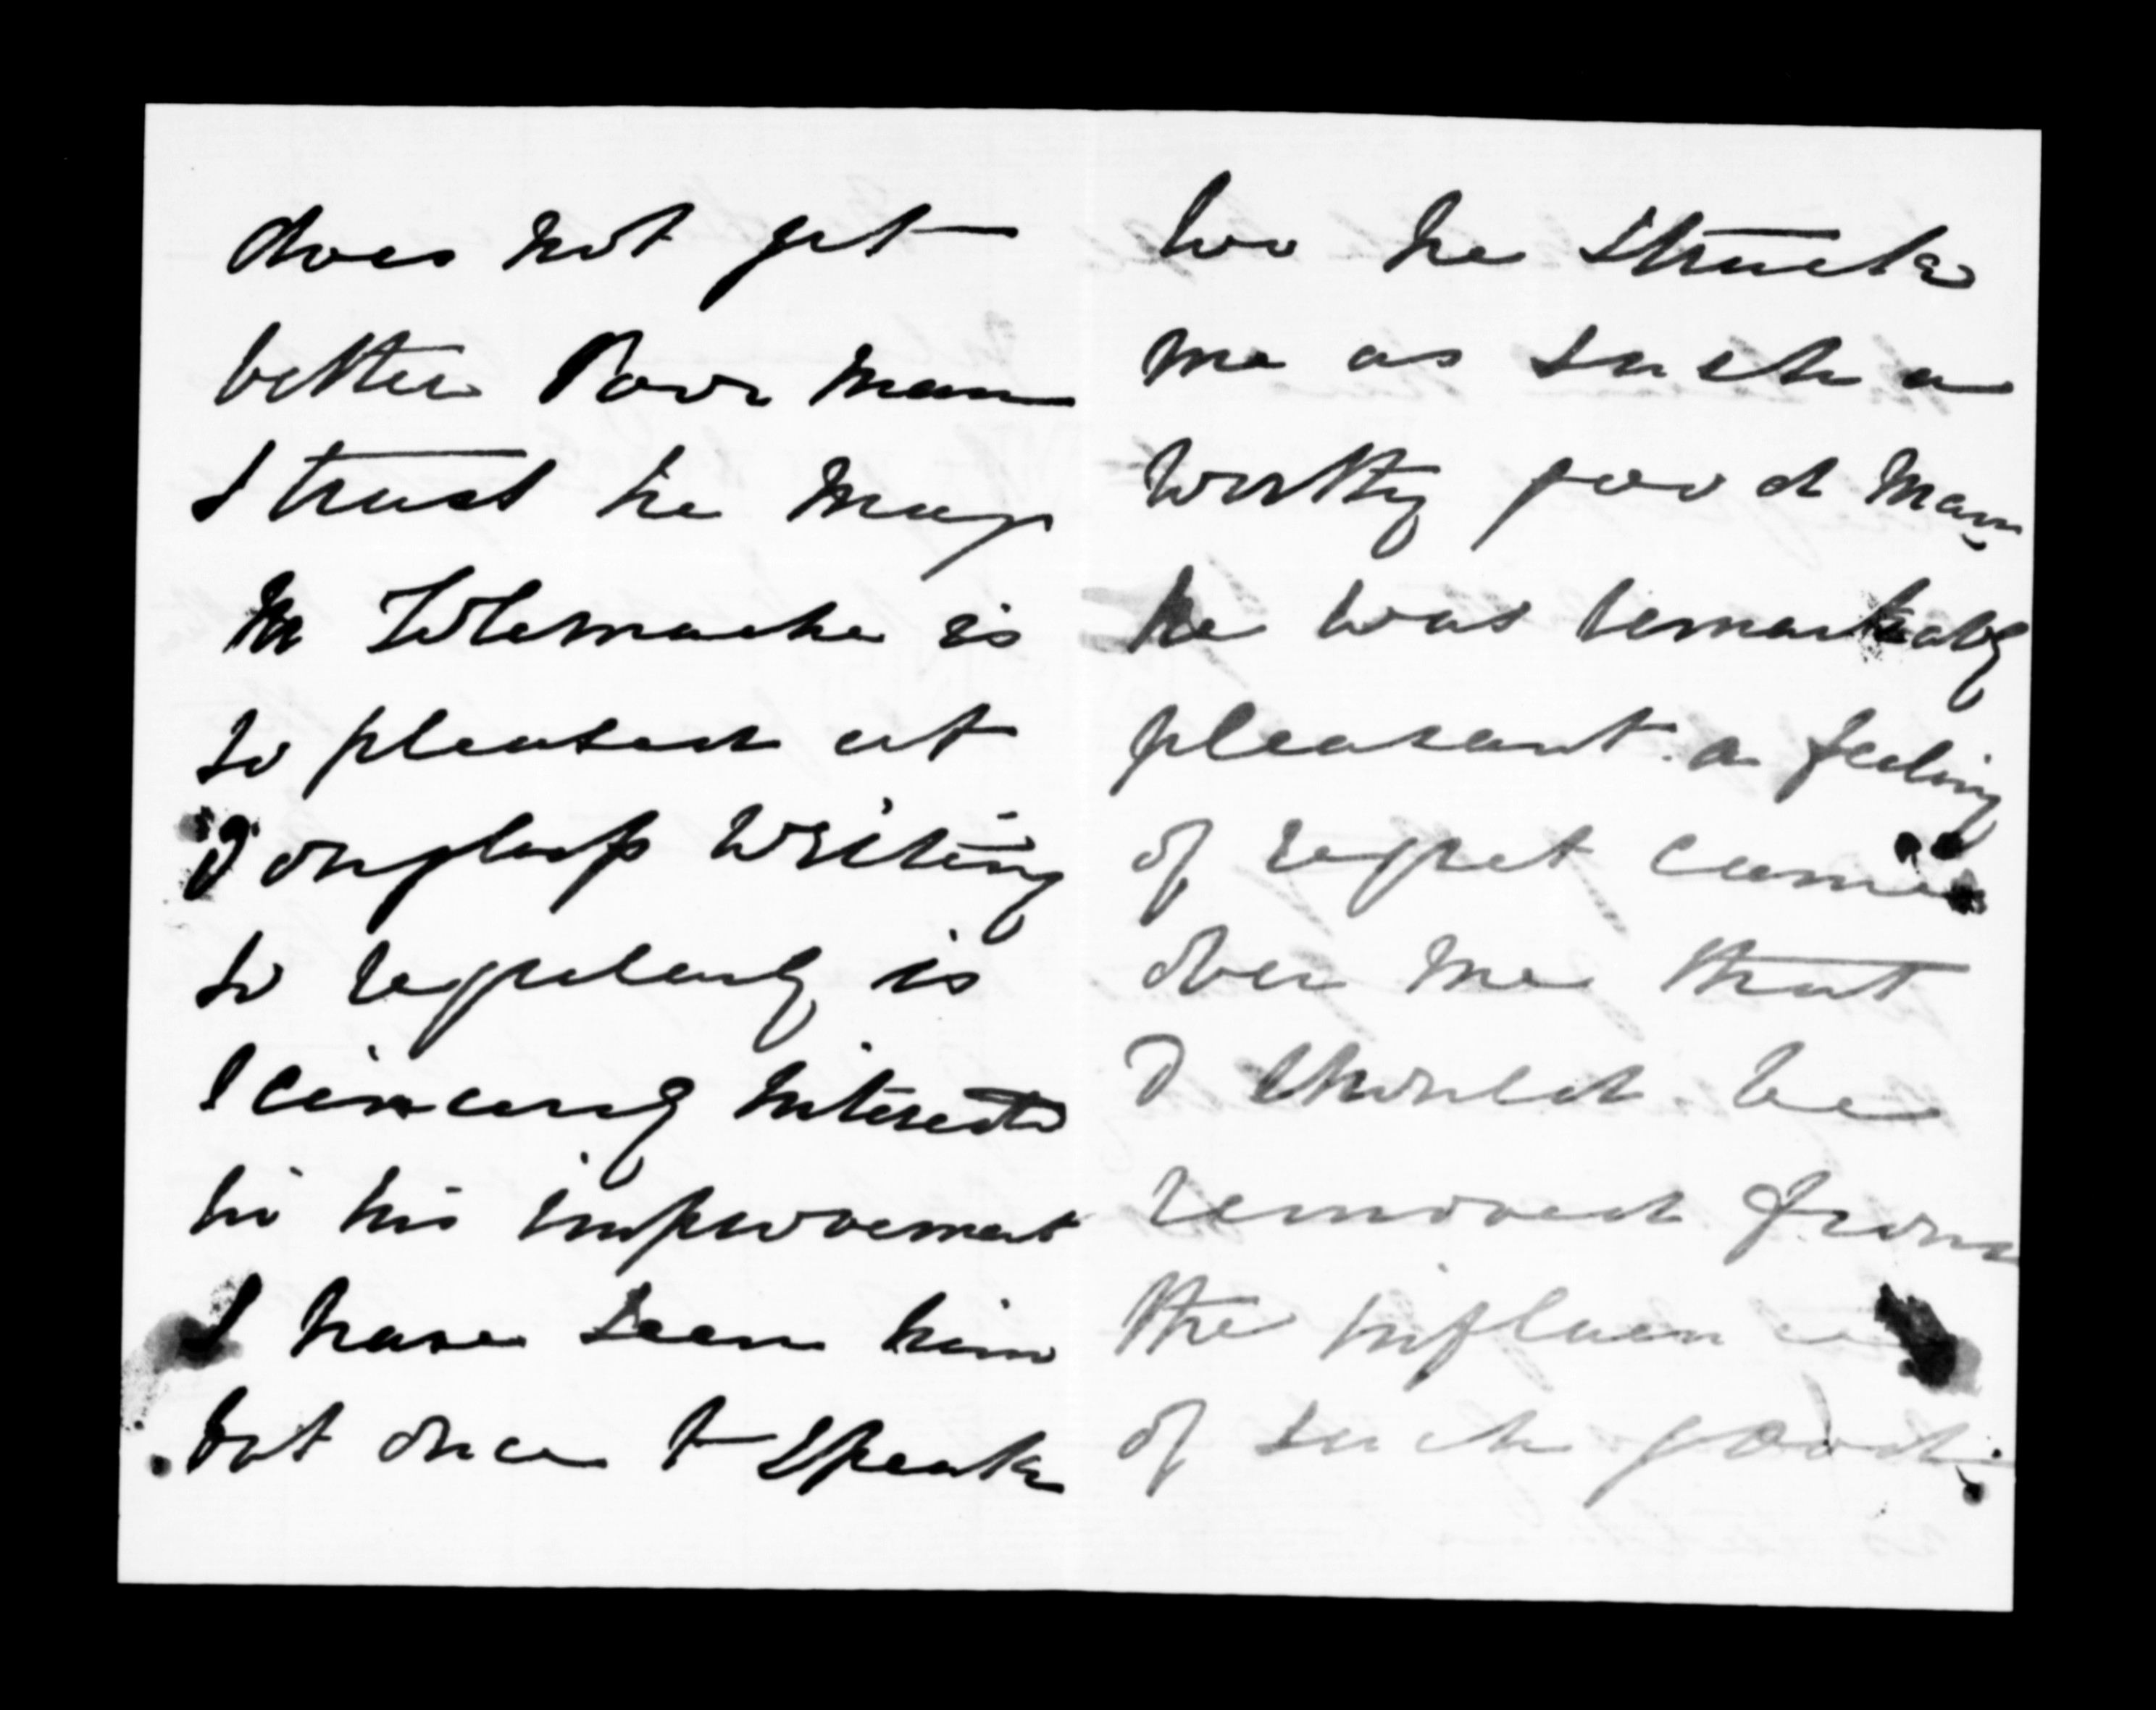 does not get
better Poor man
I trust he may
Mr Tolemache is
so pleased at
Douglass writing
so regularly is
sincerely interested
in his improvement
I have seen him
but once to speak
too he struck
me as such a
worthy good man
he was remarkably
pleasant a feeling
of regret came
over me that
I should be
removed from
the influence
of such good